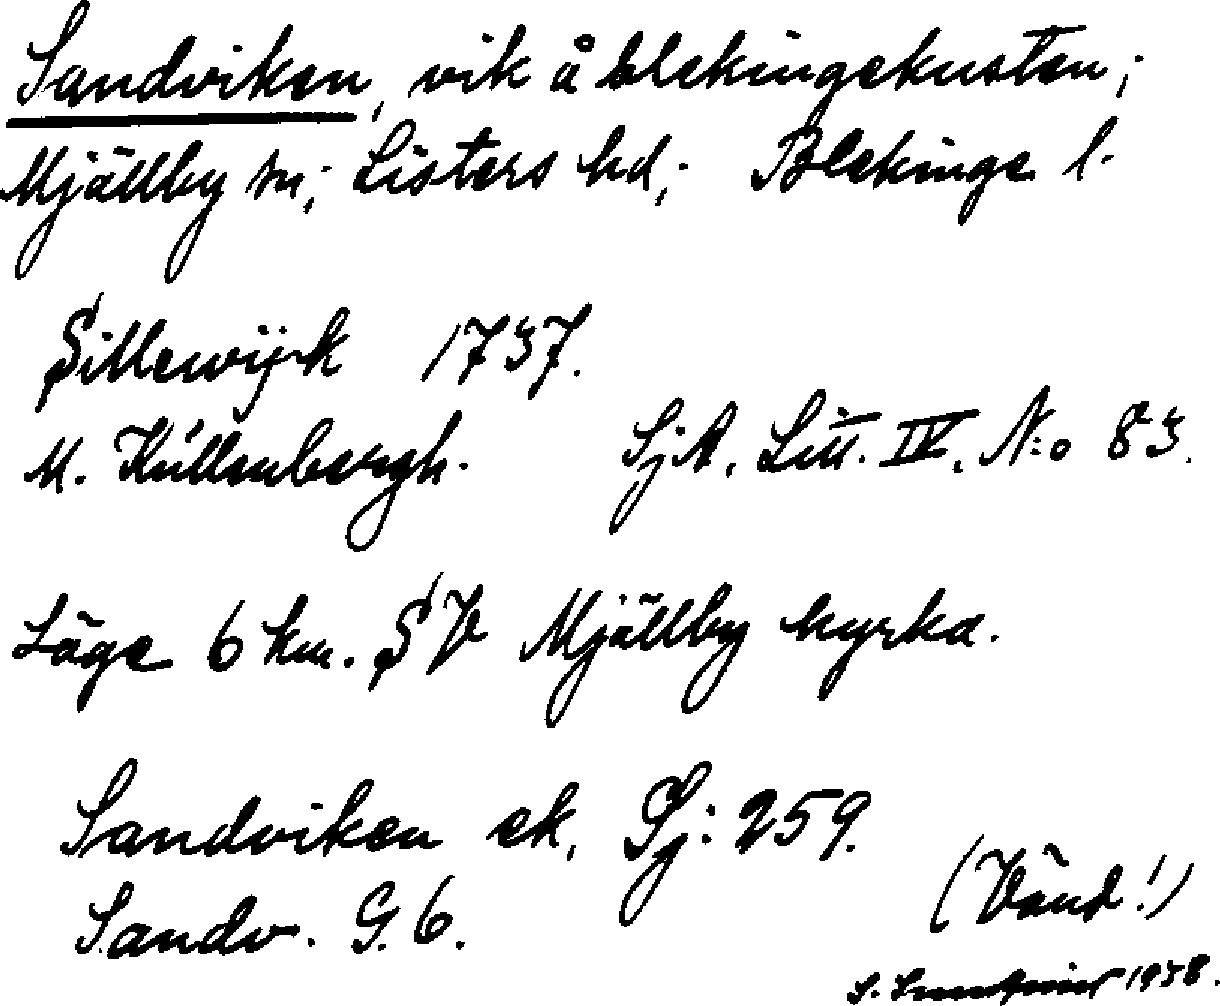 Sandviken, vik å blekingekusten;
Mjällby sn; Listers hd; Blekinge l.
Sillewijk 1737.
M. Küllenbergh. SjA. Litt. IV. N:o 83.
Läge 6 km. SV Mjällby kyrka.
Sandviken ek. Sj: 259.
Sandv. G. 6.
(Vänd!)
S. 1938.